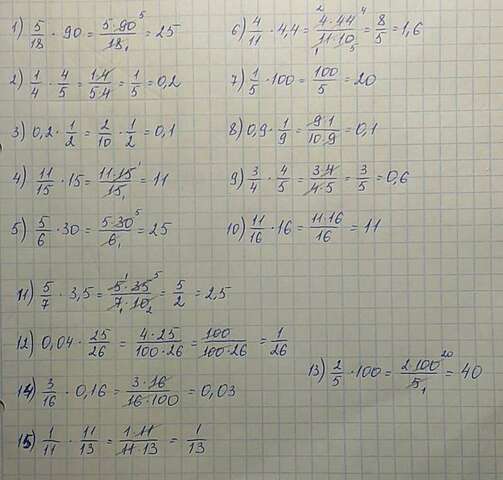 1) 5/18 · 90 = 5·90/18 = 25
2) 1/4 · 4/5 = 1·4/5·4 = 1/5 = 0,2
3) 0,2 · 1/2 = 2/10 · 1/2 = 0,1
4) 11/15 · 15 = 11·15/15 = 11
5) 5/6 · 30 = 5·30/6 = 25
6) 4/11 · 4,4 = 4·44/11·10 = 8/5 = 1,6
7) 1/5 · 100 = 100/5 = 20
8) 0,9 · 1/9 = 9·1/10·9 = 0,1
9) 3/4 · 4/5 = 3·4/4·5 = 3/5 = 0,6
10) 11/16 · 16 = 11·16/16 = 11
11) 5/7 · 3,5 = 5·35/7·10 = 5/2 = 2,5
12) 0,04 · 25/26 = 4·25/100·26 = 100/100·26 = 1/26
13) 2/5 · 100 = 2·100/5 = 40
14) 3/16 · 0,16 = 3·16/16·100 = 0,03
15) 1/11 · 11/13 = 1·11/11·13 = 1/13